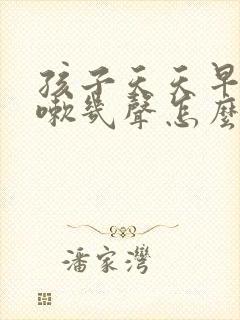 孩子天天早
嗽幾聲怎麼
潘家灣